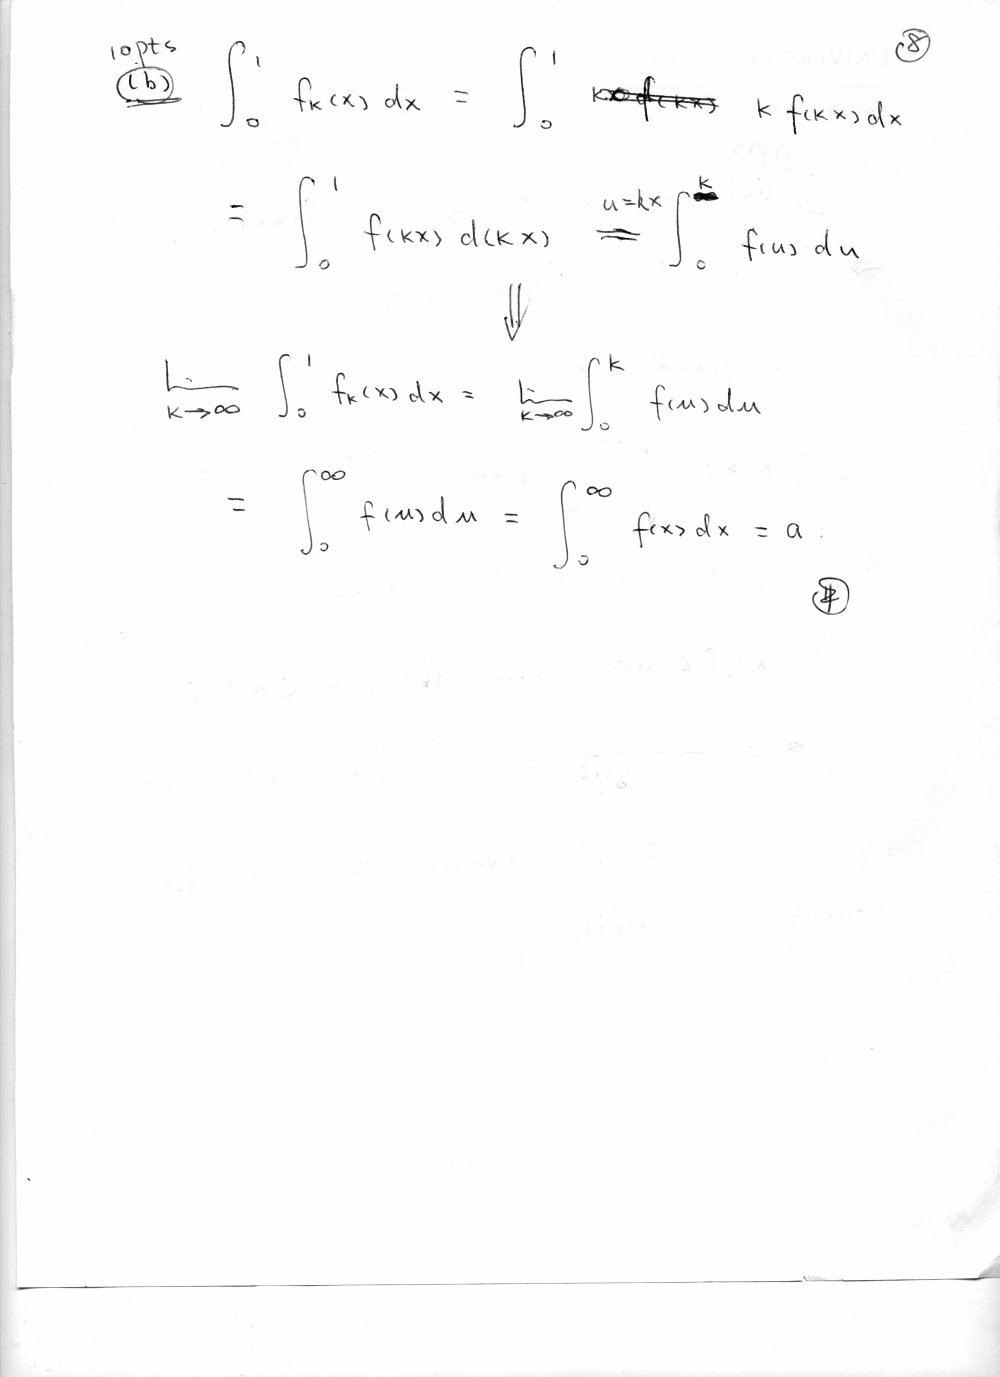 ⑧
10pts
(b) ∫₀¹ fₖ(x) dx = ∫₀¹ k f(kx) dx
= ∫₀¹ f(kx) d(kx) u=kx = ∫₀ᵏ f(u) du
⇓
lim k→∞ ∫₀¹ fₖ(x) dx = lim k→∞ ∫₀ᵏ f(u) du
= ∫₀^∞ f(u) du = ∫₀^∞ f(x) dx = a.